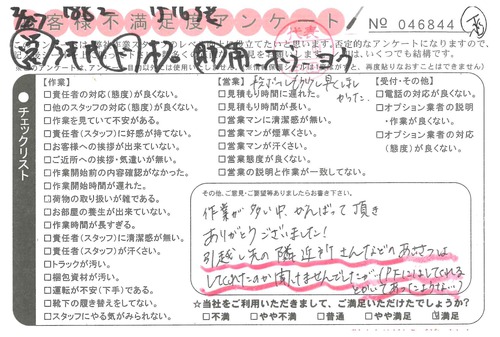 お客様不満足度アンケート
№ 046844
【作業】
□責任者の対応(態度)が良くない。
□他のスタッフの対応(態度)が良くない。
□作業を見ていて不安がある。
□責任者(スタッフ)に好感が持てない。
□お客様への挨拶が出来ていない。
□ご近所への挨拶・気遣いが無い。
□作業開始前の内容確認がなかった。
□作業開始時間が遅れた。
□荷物の取り扱いが雑である。
□お部屋の養生が出来ていない。
□作業時間が長すぎる。
□責任者(スタッフ)に清潔感が無い。
□責任者(スタッフ)が汗くさい。
□トラックが汚い。
□梱包資材が汚い。
□運転が不安(下手)である。
□靴下の履き替えをしてない。
□スタッフにやる気がみられない。
●チェックリスト
【営業】
□見積もり時間に遅れた。
□見積もり時間が長い。
□営業マンに清潔感が無い。
□営業マンが煙草くさい。
□営業マンが汗くさい。
□営業態度が良くない。
□営業の説明と作業が一致してない。
【受付・その他】
□電話の対応が良くない。
□オプション業者の説明
・作業が良くない。
□オプション業者の対応
(態度)が良くない。
その他、ご意見・ご要望等ありましたらお書き下さい。
作業が多い中、がんばって頂き
ありがとうございました!
引越し先の隣近所さんなどへのあいさつは
してくれたのか聞けませんでしたが…(HPにはしてくれる
とかいてあったような…)
☆当社をご利用いただきまして、ご満足いただけたでしょうか?
□不満 □やや不満 □普通 □やや満足 ☑満足